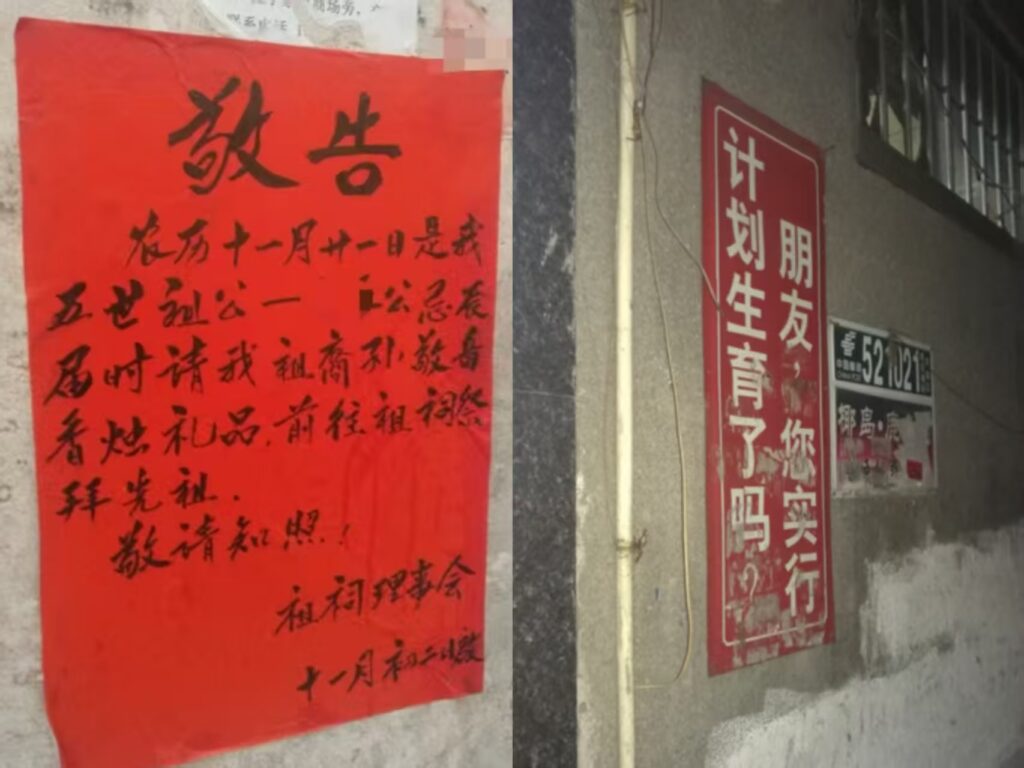 联系电话
敬告
农历十一月廿一日是我
五世祖公一 公忌辰
届时请我祖裔孙敬备
香烛礼品,前往祖祠祭
拜先祖.
敬请知照!
祖祠理事会
十一月初二日启
朋友,您实行
计划生育了吗?
521021
椰岛·鹿